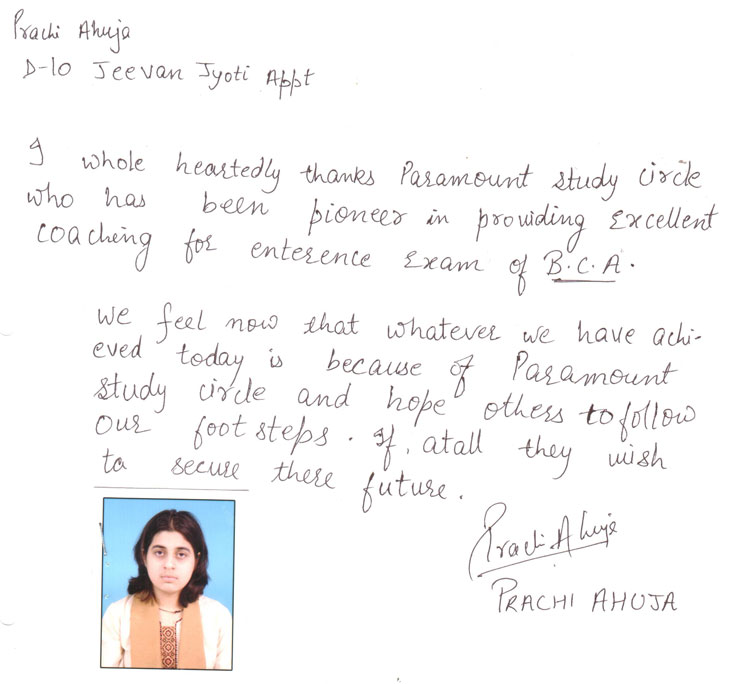 Prachi Ahuja
D-10 Jeevan Jyoti Appt
I whole heartedly thanks Paramount study circle
who has been pioneer in providing Excellent
coaching for enterence Exam of B.C.A.
We feel now that whatever we have achi-
eved today is because of Paramount
study circle and hope others to follow
our foot steps. If, atall they wish
to secure there future.
Prachi Ahuja
PRACHI AHUJA